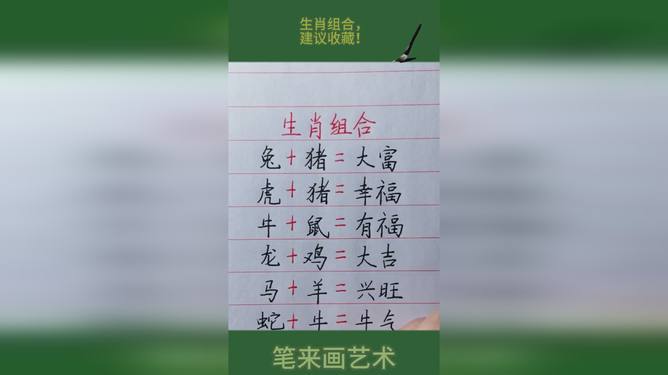 生肖组合，
建议收藏！
生肖组合
兔+猪=大富
虎+猪=幸福
牛+鼠=有福
龙+鸡=大吉
马+羊=兴旺
蛇+牛=牛气
笔来画艺术